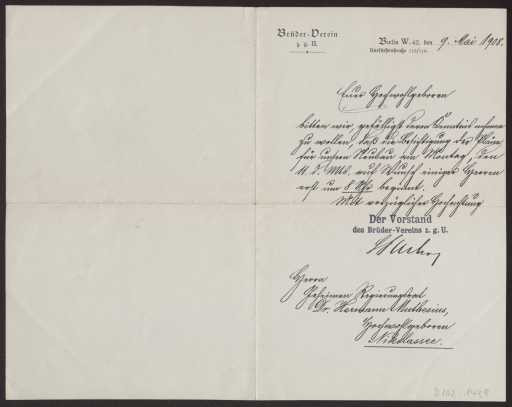 Brüder-Verein
z. g. U.
Berlin W. 62, den 9. Mai 1908.
Kurfürstenstraße
Euer Hochwohlgeboren
bitten wir, gefälligst davon Kenntnis nehmen
zu wollen, daß die Besichtigung der Pläne
für unsern Neubau am Montag, den
11. d. Mts. auf Wunsch einiger Herren
erst um 8 Uhr beginnt.
Mit vorzüglicher Hochachtung
Der Vorstand
des Brüder-Vereins z. g. U.
Herrn
Geheimen Regierungsrat
Dr. Hermann Muthesius,
Hochwohlgeboren
Nikolassee.